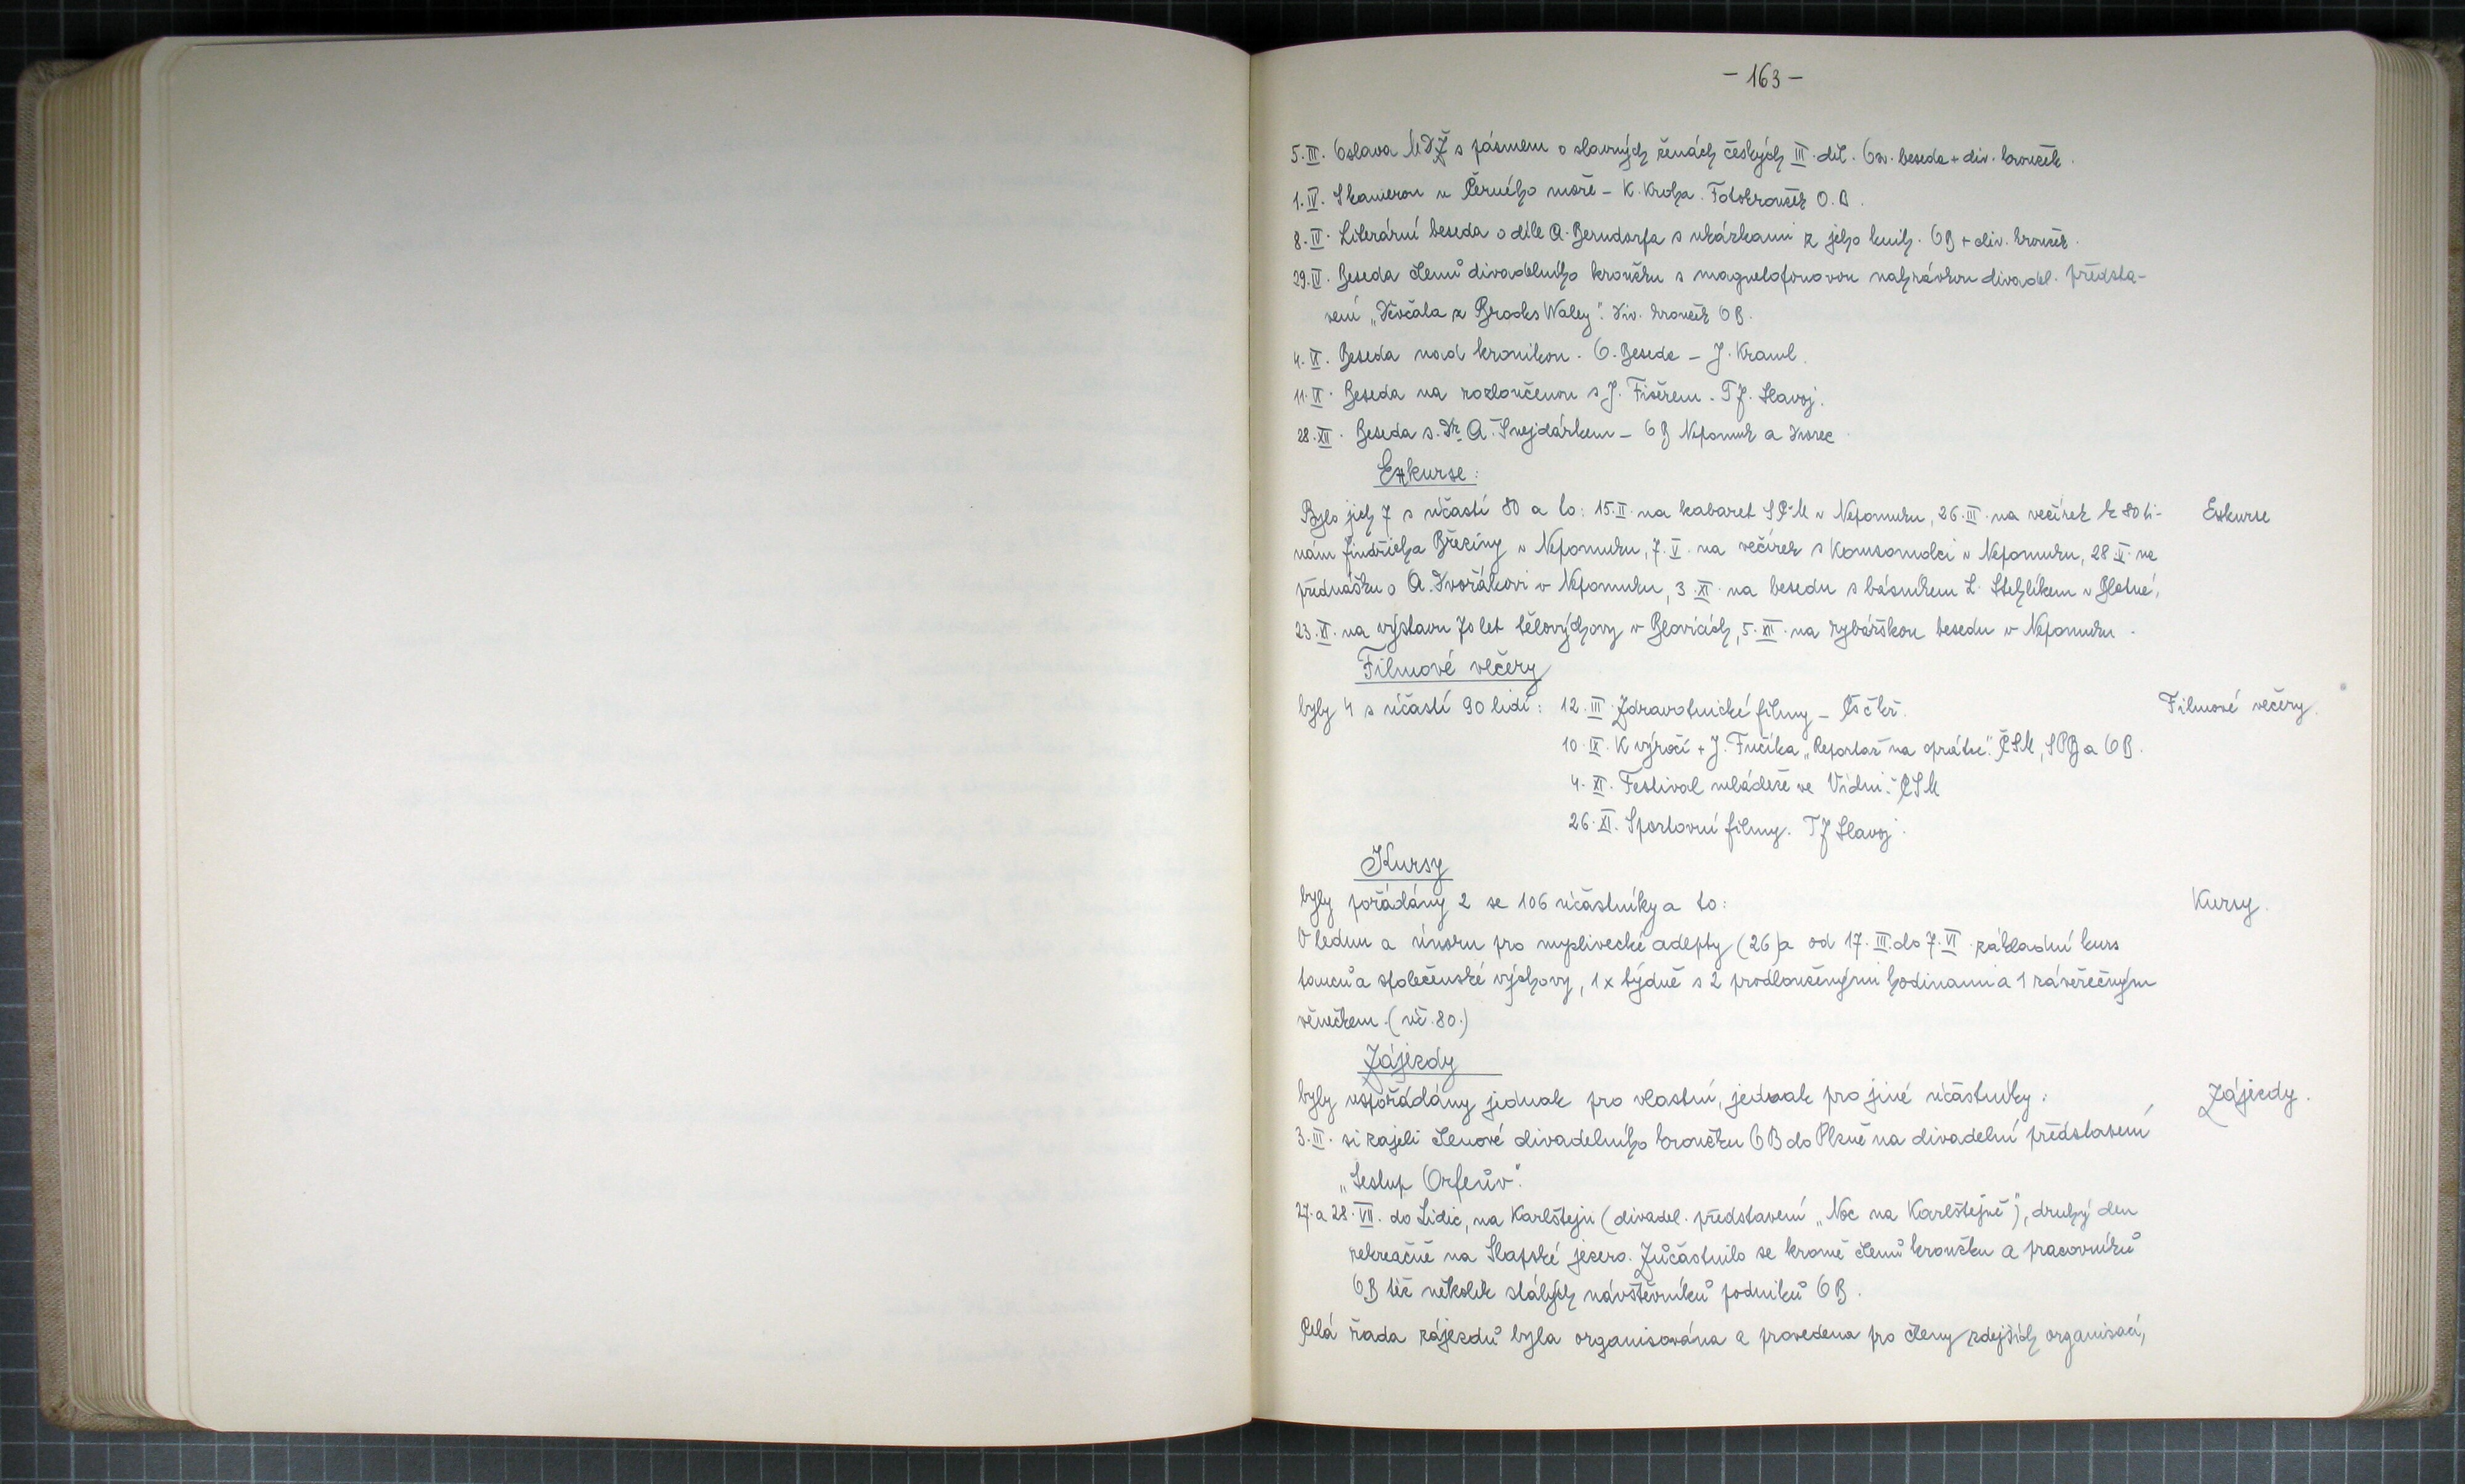 - 163 -
5. III. Oslava MDŽ s pásmem o slavných ženách českých III. díl. Os. beseda + div. kroužek.
1. IV. S kamerou u Černého moře - K. Kroha. Fotokroužek O.B.
8. IV. Literární beseda o díle A. Berndorfa s ukázkami z jeho knih. OB + div. kroužek.
29. IV. Beseda členů divadelního kroužku s magnetofonovou nahrávkou divadel. představ-
vení „Kočala z Brooks Waley". Div. kroužek OB.
4. IX. Beseda nad kronikou. O. Beseda - J. Kraml.
11. IX. Beseda na rozloučenou s J. Fišerem. TJ. Slavoj.
28. XII. Beseda s Dr. A. Šnejdárkem - OB Nepomuk a Dvorec.
Exkurse:
Bylo jich 7 s účastí 80 a to: 15. II. na kabaret ČSM v Nepomuku, 26. III. na večírek k 80ti- Exkurse
nám Jindřicha Březiny v Nepomuku, 7. V. na večírek s Komsomolci v Nepomuku, 28. V. na
přednášku o A. Dvořákovi v Nepomuku, 3. XI. na besedu s básníkem L. Stehlíkem v Blatné,
23. XI. na výstavu 70 let tělovýchovy v Blovicích, 5. XII. na rybářskou besedu v Nepomuku.
Filmové večery
byly 4 s účastí 90 lidí: 12. III. Zdravotnické filmy - ČsČK. Filmové večery.
10. IX. K výročí + J. Fučíka „Reportáž na oprátce". ČSM, SPB a OB.
4. XI. Festival mládeže ve Vídni. ČSM
26. XI. Sportovní filmy. TJ Slavoj.
Kursy
byly pořádány 2 se 106 účastníky a to: Kursy.
V lednu a únoru pro myslivecké adepty (26) a od 17. III. do 7. VI. základní kurs
tanců a společenské výchovy, 1x týdně s 2 prodlouženými hodinami a 1 závěrečným
věnečkem. (úč. 80.)
Zájezdy
byly uspořádány jednak pro vlastní, jednak pro jiné účastníky. Zájezdy.
3. III. si zajeli členové divadelního kroužku OB do Plzně na divadelní představení
„Sestup Orfeův".
27. a 28. VII. do Lidic, na Karlštejn (divadel. představení „Noc na Karlštejně"), druhý den
rekreačně na Slapské jezero. Zúčastnilo se kromě členů kroužku a pracovníků
OB též několik stálých návštěvníků podniků OB.
Celá řada zájezdů byla organisována a provedena pro členy zdejších organisací,